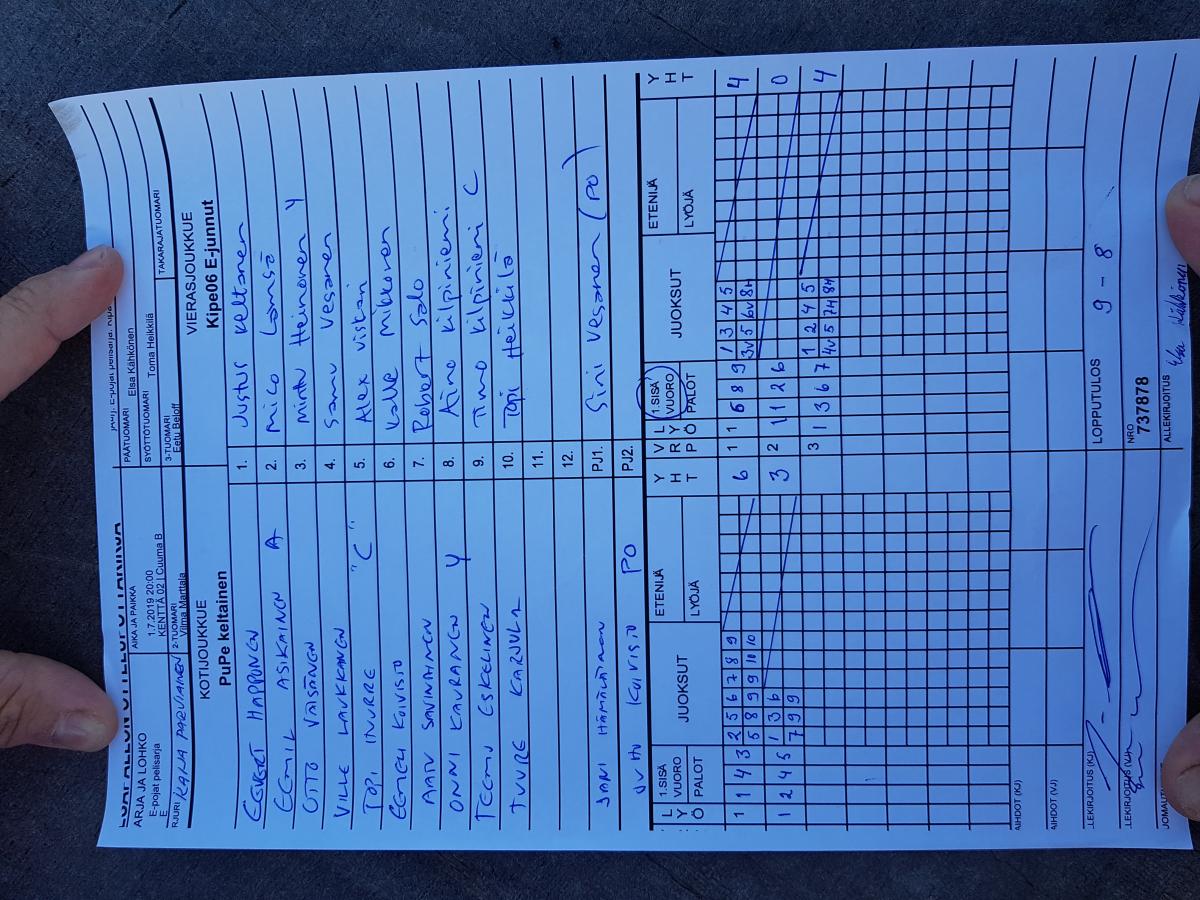 ARJA JA LOHKO
E-pojat pelisarja
E
AIKA JA PAIKKA
1.7.2019 20:00
KENTTÄ 02 | Cuuma B
PÄÄTUOMARI Elsa Kähkönen
SYÖTTÖTUOMARI Toma Heikkilä
RJURI KAIJA PARVIAINEN 2-TUOMARI Vilma Marttala 3-TUOMARI Eetu Beloff TAKARAJATUOMARI
KOTIJOUKKUE VIERASJOUKKUE
PuPe keltainen Kipe06 E-junnut
EEVERT HAPPONEN 1. Justus Keltanen
EEMIL ASIKAINEN A 2. Mico Lamsä
OTTO VÄISÄNEN 3. Minttu Heinonen Y
VILLE LAUKKANEN 4. Samu Vesanen
TOPI INURRE "C" 5. Alex Viskari
EEMELI KOIVISTO 6. Kalle Mikkonen
AAVA SAVINAINEN 7. Robert Salo
ONNI KAURANEN Y 8. Aino Kilpiniemi
TEEMU ESKELINEN 9. Timo Kilpiniemi C
TUURE KARJULA 10. Topi Heikkilä
11.
12.
JANI HÄMÄLÄINEN PJ1. Sini Vesanen (PO)
JUHO KOIVISTO PO PJ2.
L Y Ö 1.SISÄ VUORO PALOT JUOKSUT ETENIJÄ LYÖJÄ Y H T V R P L Y Ö 1.SISÄ VUORO PALOT JUOKSUT ETENIJÄ LYÖJÄ Y H T
1 1 4 3 2 5 6 7 8 9 6 1 1 6 8 9 1 3 4 5 4
5 8 9 9 10 10 3v 5 6v 8H
1 2 4 5 1 3 6 3 2 1 1 2 6 0
7 9 9
3 1 3 6 7 1 2 4 5 4
4v 5 7H 8H
AIHDOT (KJ)
AIHDOT (VJ)
LEKIRJOITUS (KJ) LOPPUTULOS 9 - 8
LEKIRJOITUS (VJ) NRO 737878
ALLEKIRJOITUS Elsa Kähkönen